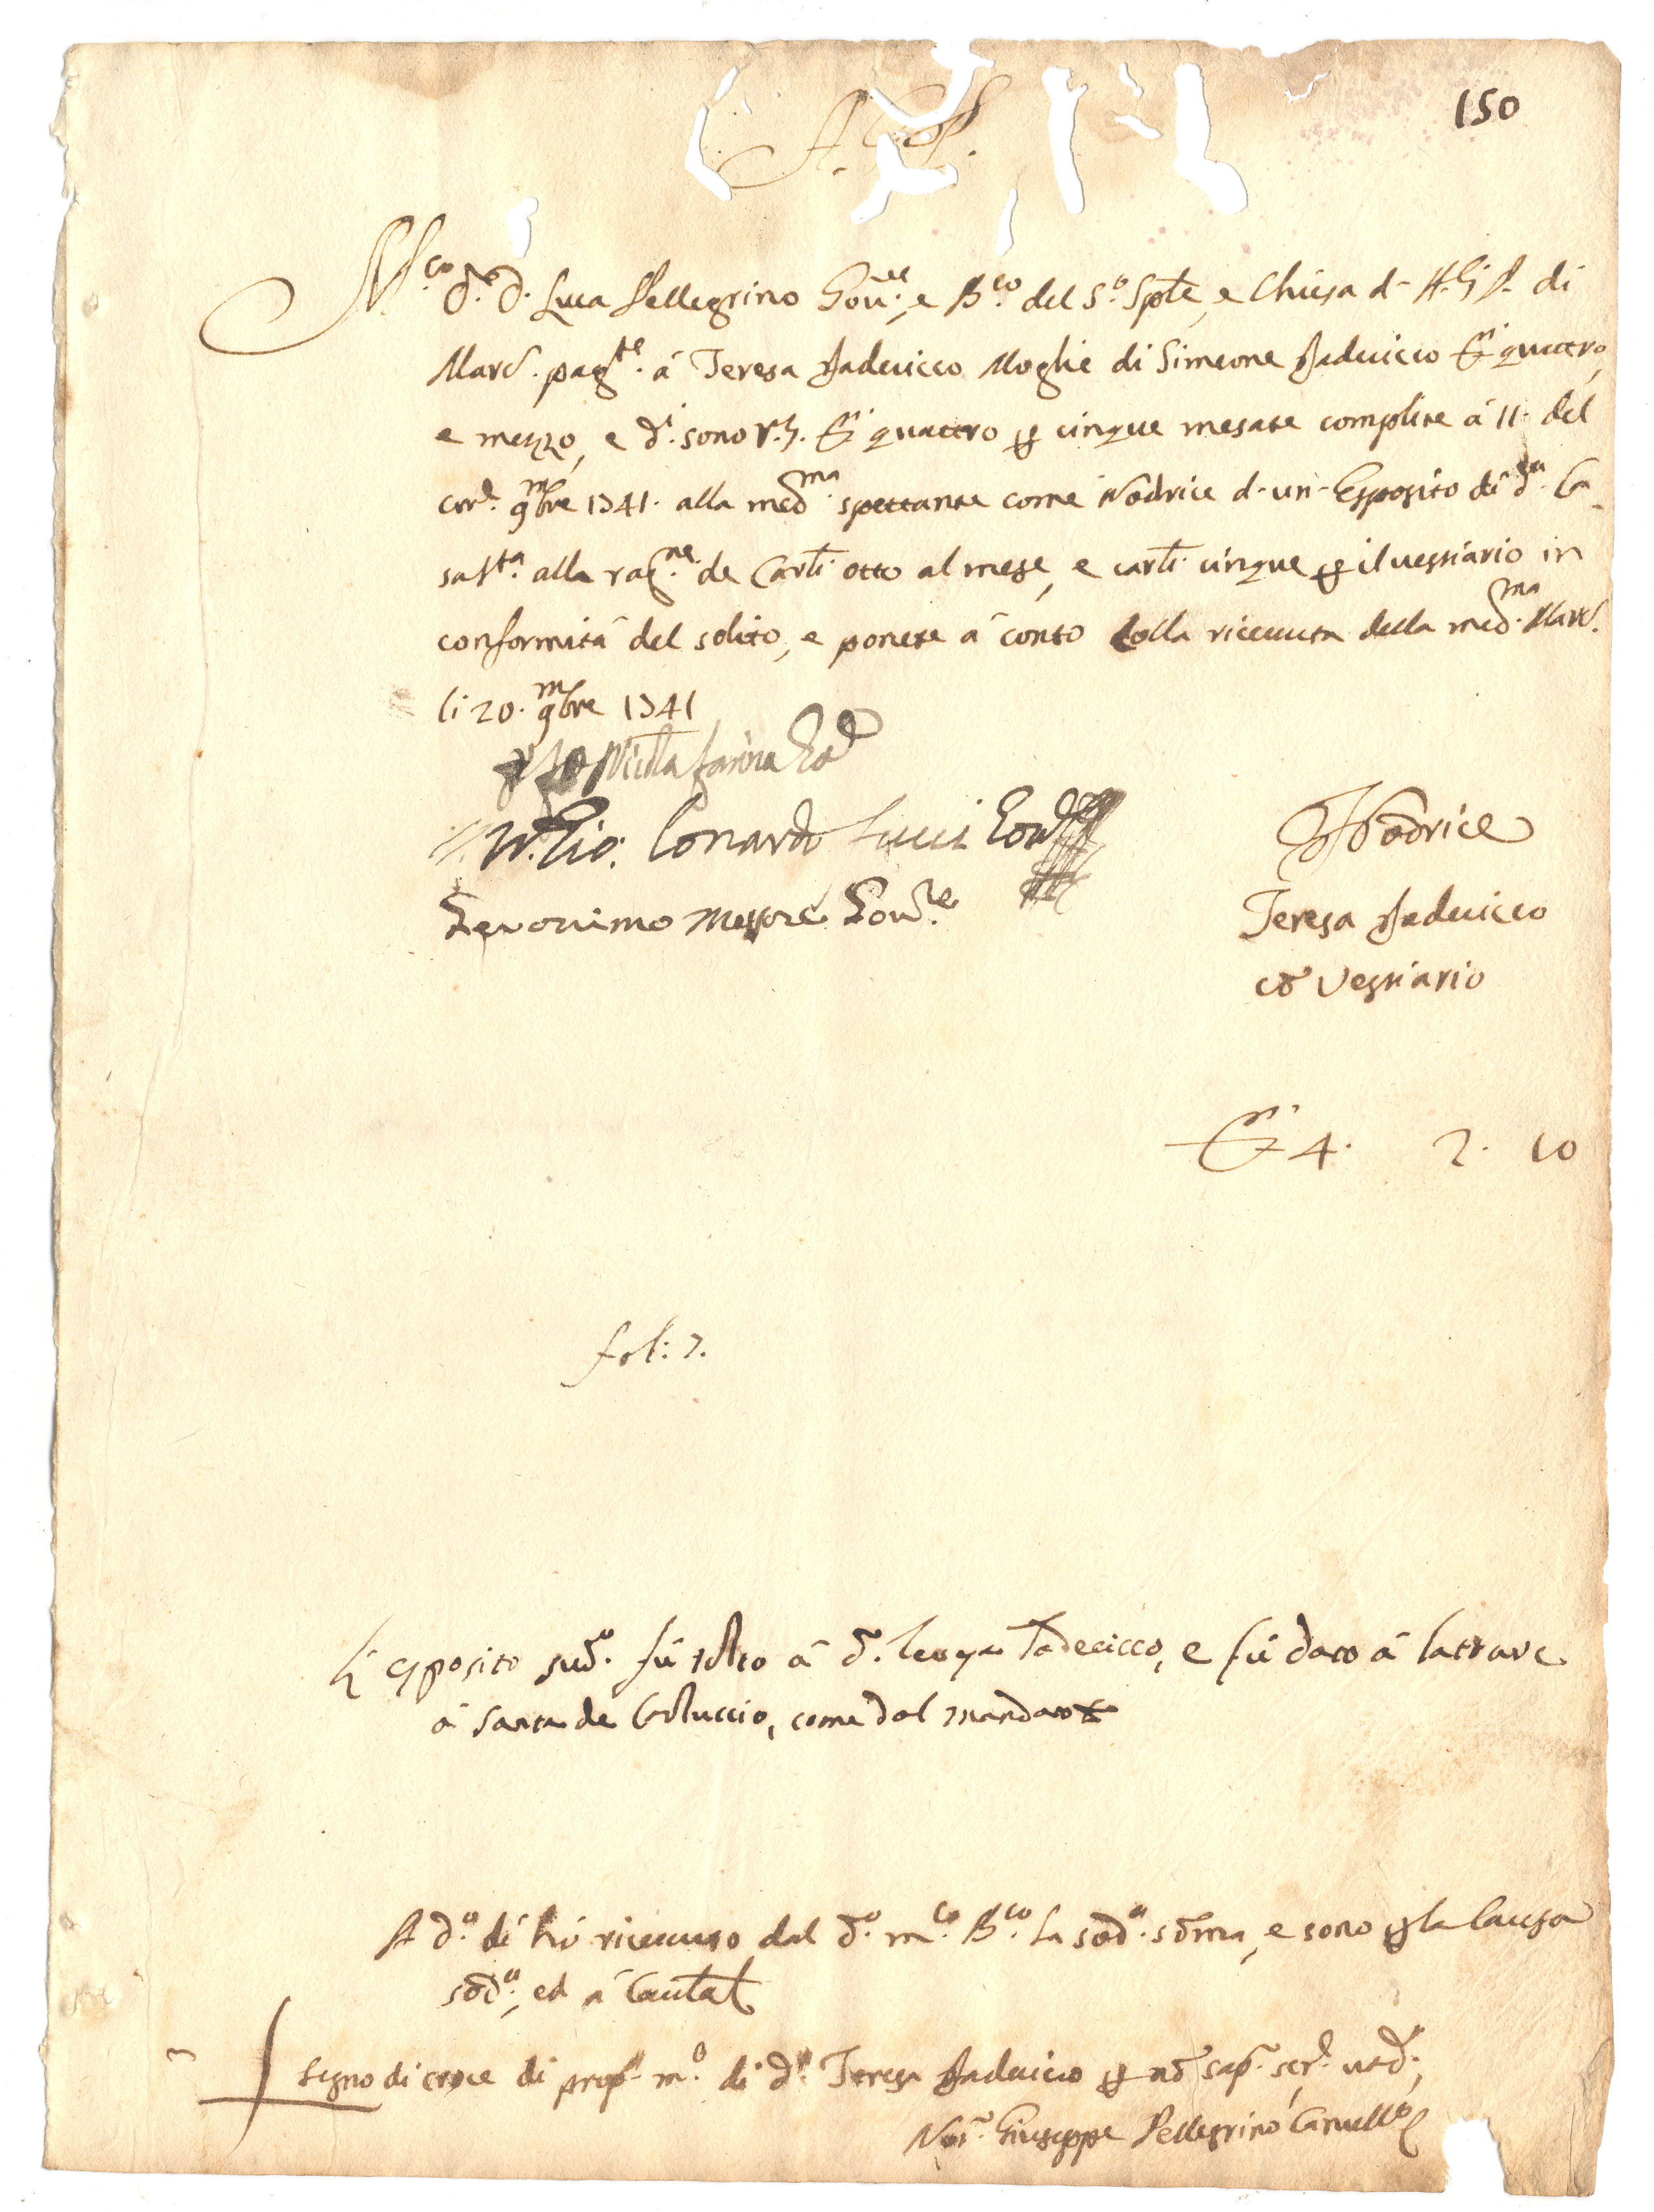 150
A. G. P.
M.co d.r d. Luca Pellegrino Gov.re, e B.co del S.o Sp.le, e Chiesa d- A. G. P. di
Marc. pag.te à Teresa Iadevicco Moglie di Simeone Iadevicco D.ti quattro,
e mezzo, e d.i sono D.ti quattro per cinque mesate complite à 11 del
corr. 9mbre 1741. alla med.ma spettante come Nodrice d-un-Esposito di d.ta Ca-
sa S.ta alla rag.ne de Carl. otto al mese, e carl. cinque per il vestiario in
conformità del solito, e ponete à conto colla ricevuta della med.ma Marc.
li 20. 9mbre 1741
farina
N. Gio: Lonardo Lucci
Geronimo Messore Gov.re
Nodrice
Teresa Iadevicco
cō Vestiario
D.ti 4. 2. 10
fol: 7.
L'esposito sud.o fù tolto à d.a Teresa Iadecicco, e fù dato à lattare
à Santa de Coluccio, come dal mandato
A d.o dì hò ricevuto dal d.o m.co B.co la sod.a sōma, e sono per la causa
sod.a, ed à Cautal
Segno di croce di prop. m.o di d.a Teresa Iadevicco per nō sap. scr.
Not. Giuseppe Pellegrino Canull.o